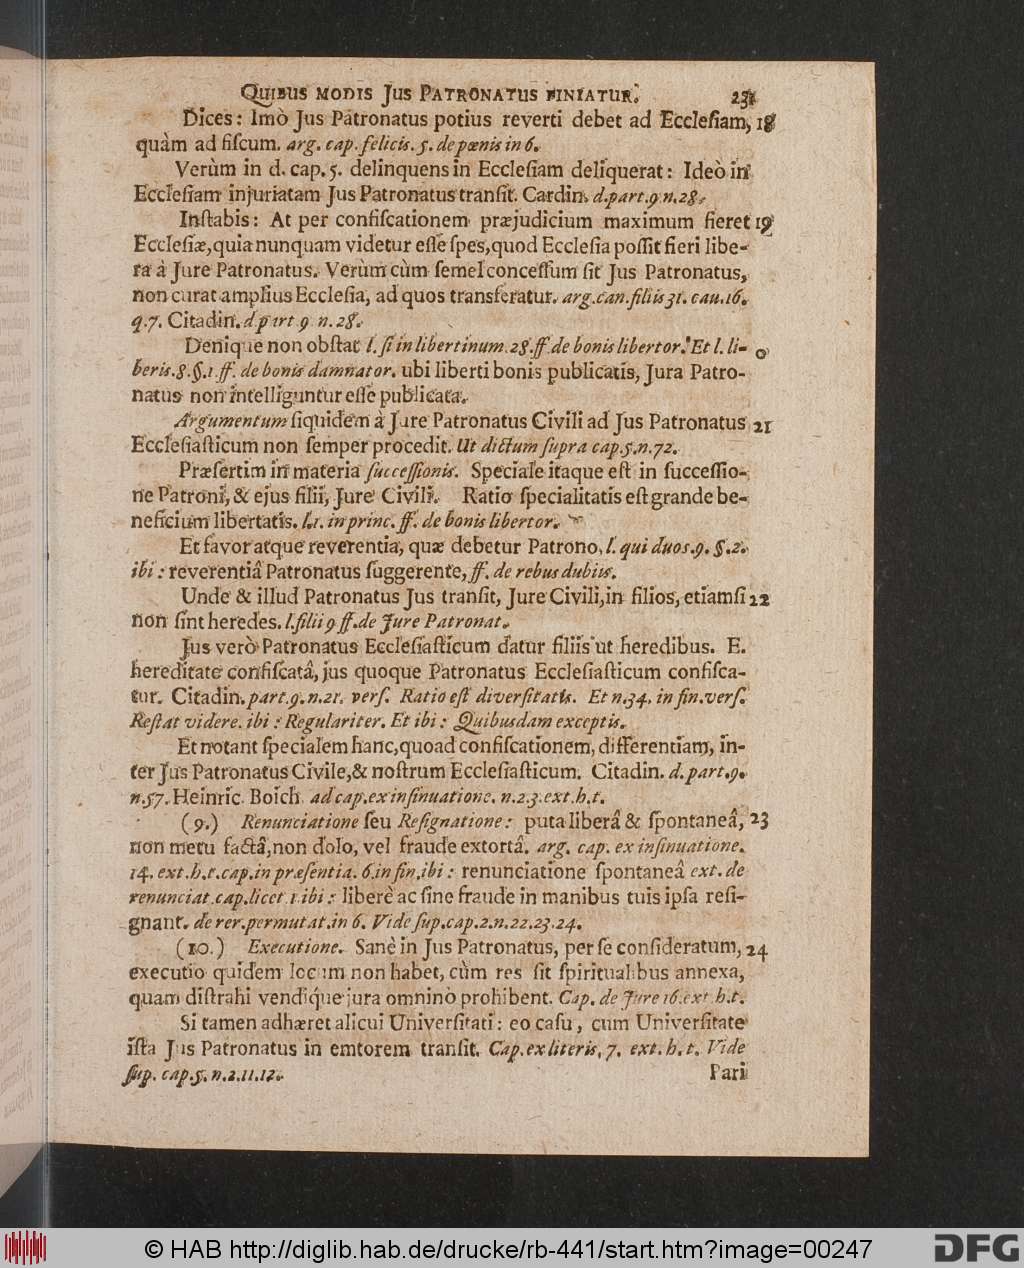 QUIBUS MODIS JUS PATRONATUS FINIATUR. 231
Dices: Imò Jus Patronatus potius reverti debet ad Ecclesiam, 18
quàm ad fiscum. arg. cap. felicis. 5. de pœnis in 6.
Verùm in d. cap. 5. delinquens in Ecclesiam deliquerat: Ideò in
Ecclesiam injuriatam Jus Patronatus transit. Cardin. d. part. 9 n. 28.
Instabis: At per confiscationem præjudicium maximum fieret 19
Ecclesiæ, quia nunquam videtur esse spes, quod Ecclesia possit fieri libe-
ra à Jure Patronatus. Verùm cùm semel concessum sit Jus Patronatus,
non curat amplius Ecclesia, ad quos transferatur. arg. can. filiis 31. cau. 16.
q. 7. Citadin. d part 9 n. 28.
Denique non obstat l. si in libertinum. 28. ff. de bonis libertor. Et l. li- 0
beris. 8. §. 1. ff. de bonis damnator. ubi liberti bonis publicatis, Jura Patro-
natus non intelliguntur esse publicata.
Argumentum siquidem à Jure Patronatus Civili ad Jus Patronatus 21
Ecclesiasticum non semper procedit. Ut dictum supra cap. 5. n. 72.
Præsertim in materia successionis. Speciale itaque est in successio-
ne Patroni, & ejus filii, Jure Civili. Ratio specialitatis est grande be-
neficium libertatis. l. 1. in princ. ff. de bonis libertor.
Et favor atque reverentia, quæ debetur Patrono, l. qui duos. 9. §. 2.
ibi: reverentiâ Patronatus suggerente, ff. de rebus dubiis.
Unde & illud Patronatus Jus transit, Jure Civili, in filios, etiamsi 22
non sint heredes. l. filii 9 ff. de Jure Patronat.
Jus verò Patronatus Ecclesiasticum datur filiis ut heredibus. E.
hereditate confiscatâ, jus quoque Patronatus Ecclesiasticum confisca-
tur. Citadin. part. 9. n. 21. vers. Ratio est diversitatis. Et n. 34. in fin. vers.
Restat videre. ibi: Regulariter. Et ibi: Quibusdam exceptis.
Et notant specialem hanc, quoad confiscationem, differentiam, in-
ter Jus Patronatus Civile, & nostrum Ecclesiasticum. Citadin. d. part. 9.
n. 57. Heinric. Boich. ad cap. ex insinuatione. n. 2. 3. ext. h. t.
(9.) Renunciatione seu Resignatione: puta liberâ & spontaneâ, 23
non metu factâ, non dolo, vel fraude extortâ. arg. cap. ex insinuatione.
14. ext. h. t. cap. in præsentia. 6. in fin, ibi: renunciatione spontaneâ ext. de
renunciat. cap. licet 1. ibi: liberè ac sine fraude in manibus tuis ipsa resi-
gnant. de rer. permutat. in 6. Vide sup. cap. 2. n. 22. 23. 24.
(10.) Executione. Sanè in Jus Patronatus, per se consideratum, 24
executio quidem locum non habet, cùm res sit spiritualibus annexa,
quam distrahi vendique jura omnino prohibent. Cap. de Jure 16. ext. h. t.
Si tamen adhæret alicui Universitati: eo casu, cum Universitate
ista Jus Patronatus in emtorem transit. Cap. ex literis. 7. ext. h. t. Vide
sup. cap. 5. n. 2. 11. 12.
Pari
© HAB http://diglib.hab.de/drucke/rb-441/start.htm?image=00247
DFG